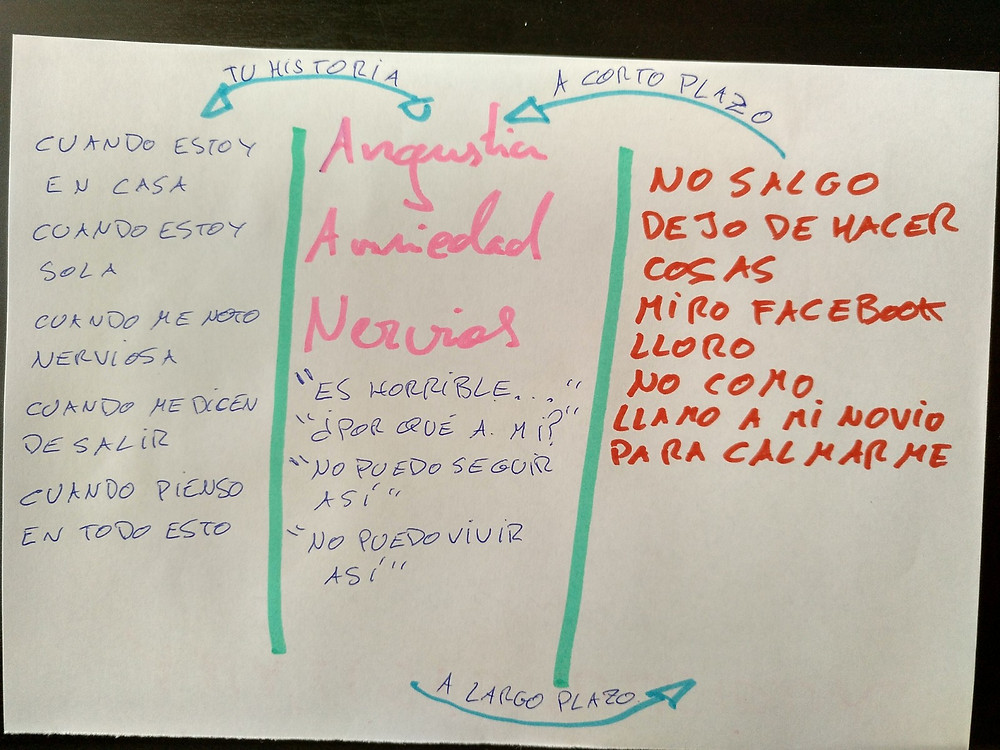 TU HISTORIA
A CORTO PLAZO
CUANDO ESTOY
EN CASA
CUANDO ESTOY
SOLA
CUANDO ME NOTO
NERVIOSA
CUANDO ME DICEN
DE SALIR
CUANDO PIENSO
EN TODO ESTO
Angustia
Ansiedad
Nervios
"ES HORRIBLE..."
"¿POR QUÉ A MI?"
"NO PUEDO SEGUIR
ASÍ"
"NO PUEDO VIVIR
ASÍ"
NO SALGO
DEJO DE HACER
COSAS
MIRO FACEBOOK
LLORO
NO COMO
LLAMO A MI NOVIO
PARA CALMARME
A LARGO PLAZO